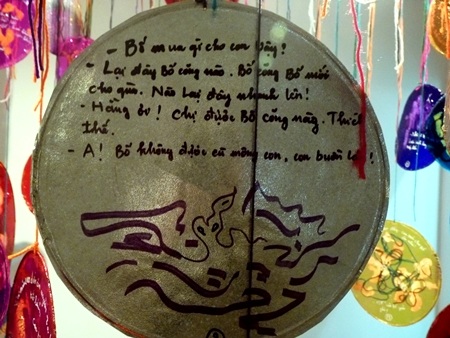 - Bố mua gì cho con đấy?
- Lại đây Bố cõng nào. Bố cõng Bố mới
cho quà. Nào lại đây nhanh lên!
- Hằng ơi! Chị được Bố cõng này. Thích
thế.
- A! Bố không được cù mông con, con buồn !